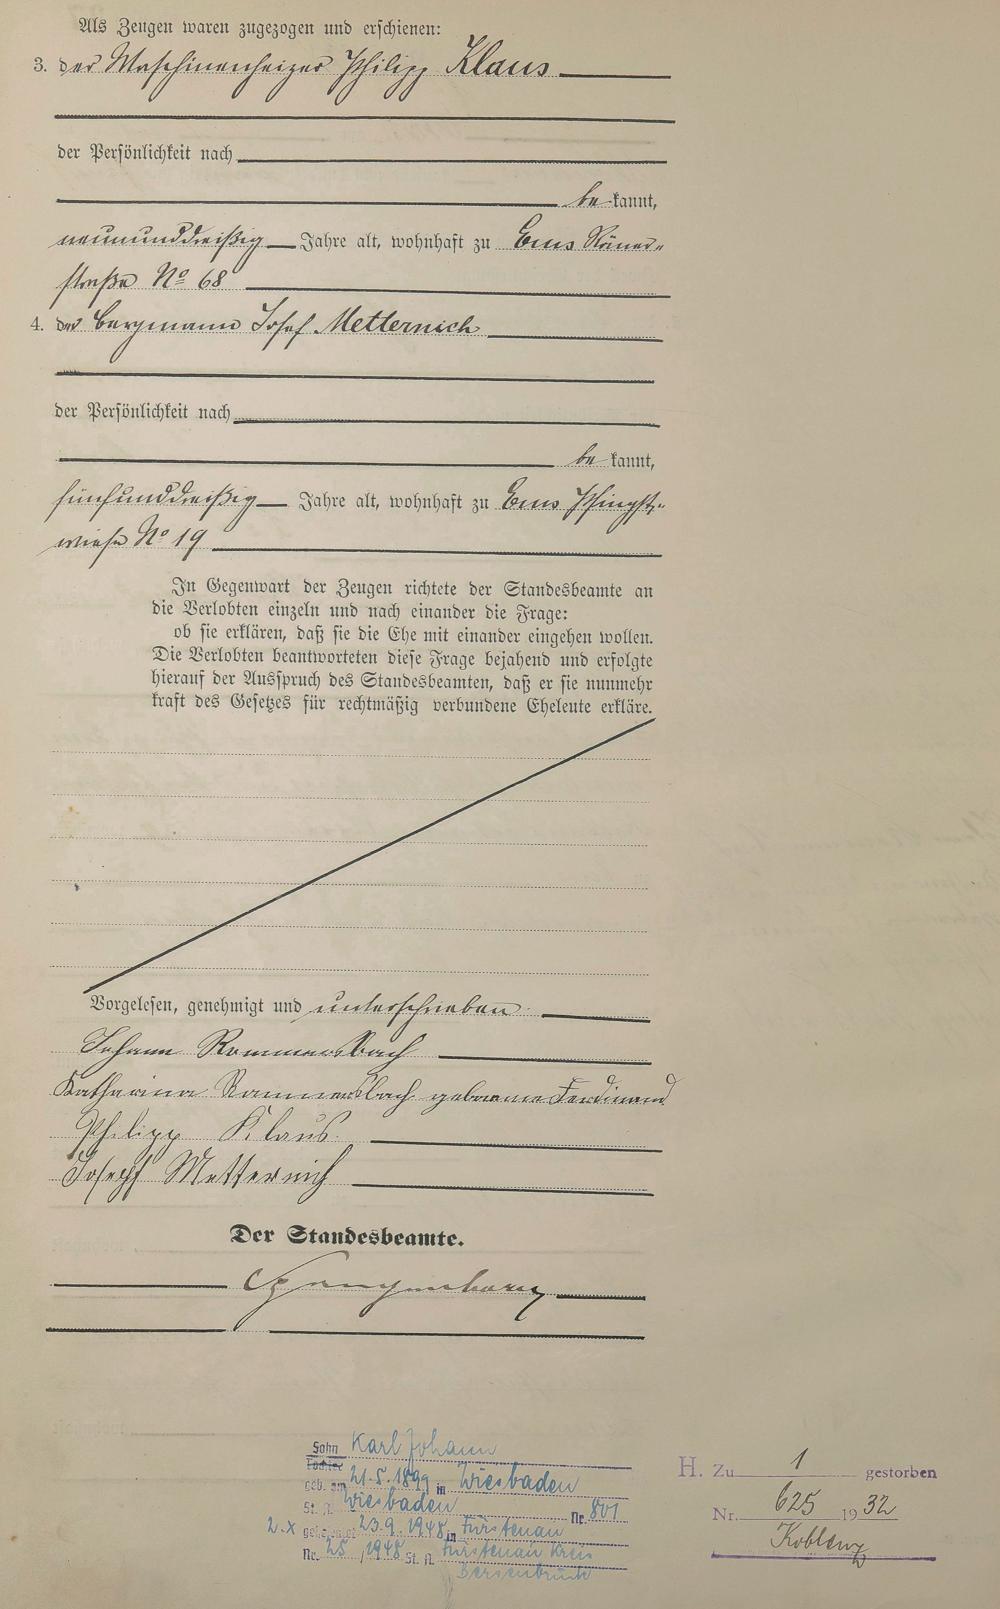 Als Zeugen waren zugezogen und erschienen:
3. der Maschinenheizer Philipp Klaus
der Persönlichkeit nach
be kannt,
neununddreißig Jahre alt, wohnhaft zu Ems Römer-
straße No 68
4. der Bergmann Josef Metternich
der Persönlichkeit nach
be kannt,
fünfunddreißig Jahre alt, wohnhaft zu Ems Pfingst-
wiese No 19
In Gegenwart der Zeugen richtete der Standesbeamte an
die Verlobten einzeln und nach einander die Frage:
ob sie erklären, daß sie die Ehe mit einander eingehen wollen.
Die Verlobten beantworteten diese Frage bejahend und erfolgte
hierauf der Ausspruch des Standesbeamten, daß er sie nunmehr
kraft des Gesetzes für rechtmäßig verbundene Eheleute erkläre.
Vorgelesen, genehmigt und unterschrieben
Johann Rommersbach
Katharina Rommersbach geborene Ferdinand
Philipp Klaus
Joseph Metternich
Der Standesbeamte.
Sohn Karl Johann
Tochter
geb. am 21.5.1899 in Wiesbaden
St. A. Wiesbaden Nr. 801
2. x geheiratet 23.9.1948 in Fürstenau
Nr. 25 /1948 St. A. Fürstenau Kreis
Bersenbrück
H. Zu 1 gestorben
Nr. 625 1932
Koblenz